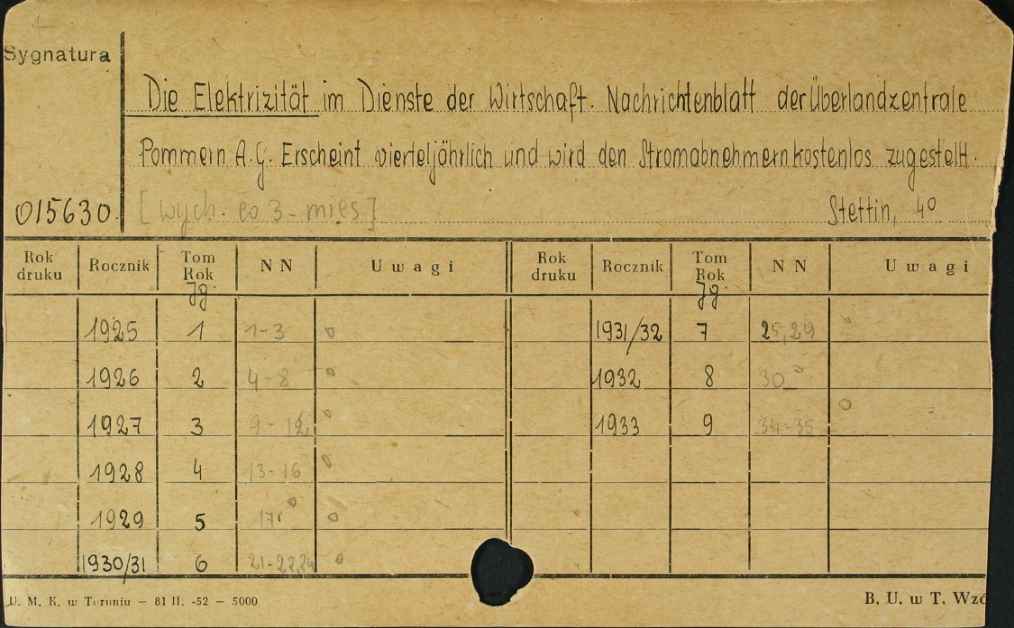 Sygnatura
Die Elektrizität im Dienste der Wirtschaft. Nachrichtenblatt der Überlandzentrale
Pommern A.G. Erscheint vierteljährlich und wird den Stromabnehmern kostenlos zugestellt.
015630. [wych. co 3-mies] Stettin, 4º
Rok druku Rocznik Tom Rok Jg. NN Uwagi Rok druku Rocznik Tom Rok Jg. NN Uwagi
1925 1 1-3 o 1931/32 7 25,29 o
1926 2 4-8 o 1932 8 30 o
1927 3 9-12 o 1933 9 34-35 o
1928 4 13-16 o
1929 5 17 o o
1930/31 6 21-22,24 o
U. M. K. w Toruniu — 81 II. -52 — 5000 B. U. w T. Wzó